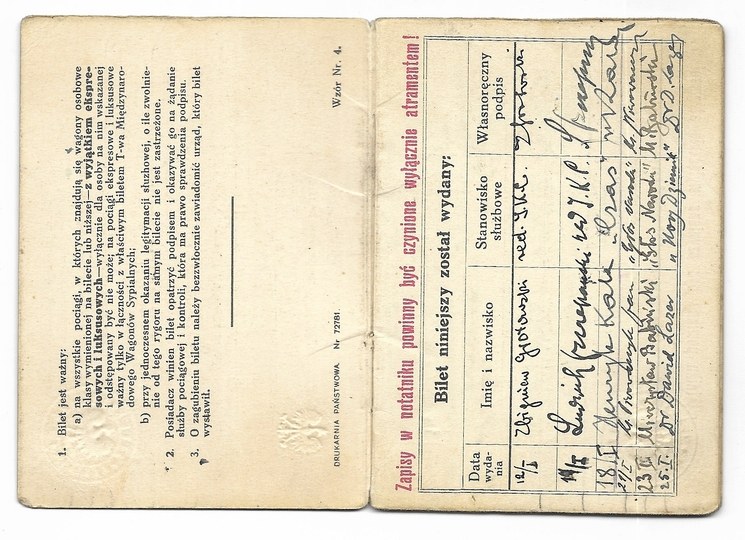 1. Bilet jest ważny:
a) na wszystkie pociągi, w których znajdują się wagony osobowe
klasy wymienionej na bilecie lub niższej—z wyjątkiem ekspre-
sowych i luksusowych—wyłącznie dla osoby na nim wskazanej
i odstępowany być nie może; na pociągi ekspresowe i luksusowe
ważny tylko w łączności z właściwym biletem T-wa Międzynaro-
dowego Wagonów Sypialnych;
b) przy jednoczesnem okazaniu legitymacji służbowej, o ile zwolnie-
nie od tego rygoru na samym bilecie nie jest zastrzeżone.
2. Posiadacz winien bilet opatrzyć podpisem i okazywać go na żądanie
służby pociągowej i kontroli, która ma prawo sprawdzenia podpisu.
3. O zagubieniu biletu należy bezzwłocznie zawiadomić urząd, który bilet
wystawił.
Wzór Nr. 4.
DRUKARNIA PAŃSTWOWA Nr 72781.
Zapisy w notatniku powinny być czynione wyłącznie atramentem!
Bilet niniejszy został wydany:
Data
wyda-
nia
Imię i nazwisko
Stanowisko
służbowe
Własnoręczny
podpis
12/I Zbigniew Grotowski red. I.K.C.
19/I Ludwik Szczepański red I.K.P.
18.I Henryk Kala „Czas"
21/I „Głos Narodu"
23 I Mieczysław Babiński „Głos Narodu" M Babiński
25.I. Dr Dawid Lazer „Nowy Dziennik" Dr D. Lazer